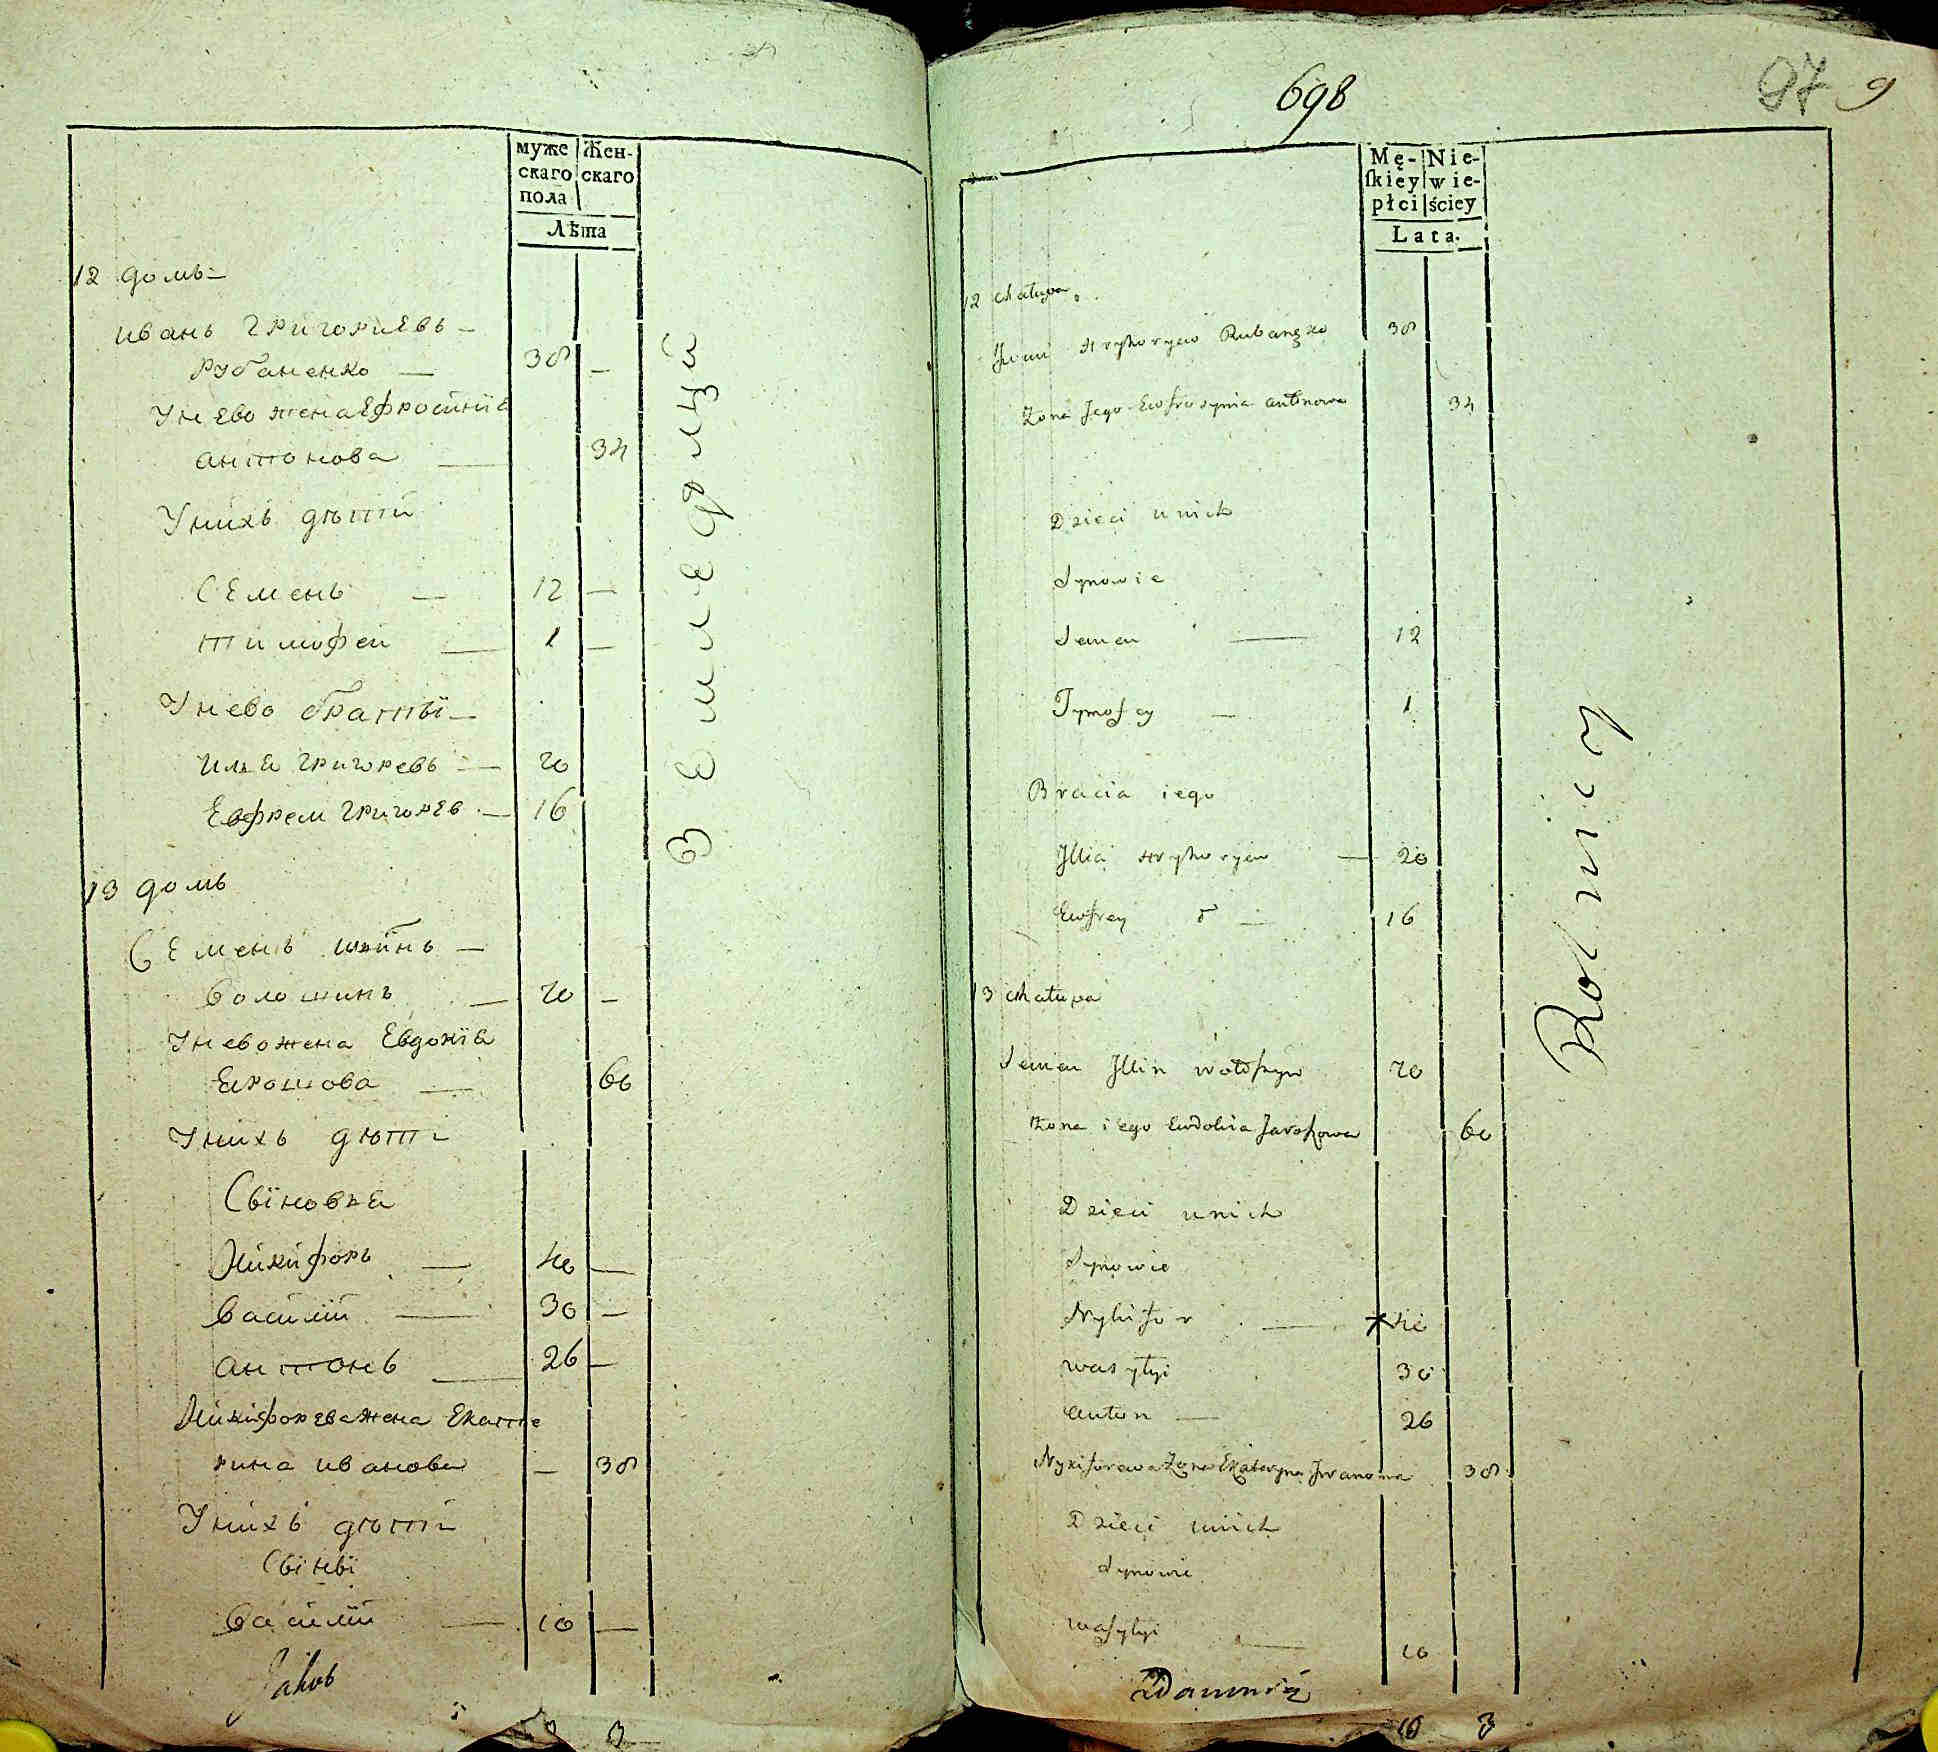 муже
скаго
пола
Жен-
скаго
Лѣта
12 домъ
иванъ григориевъ
рубаненко — 38 —
Унево жена Ефросинiа
антонова — 34
Унихъ дѣти
Семенъ — 12 —
тимофеи — 1 —
Унево братьи
илѧ григоревъ — 20
Евфрем григорев — 16
13 домъ
Семенъ илинъ
волошинъ — 70 —
Унево жена Евдокiа
Ярошова — 60
Унихъ дѣти
Сыновѧ
Никифоръ — 40 —
василiй — 30 —
антонъ — 26 —
Никифорева жена Екате
рина иванова — 38
Унихъ дѣти
Сыны
василiй — 10 —
Jakob
3
Земледѣлцы
698
97 9
Mę-
skiey
płci
Nie-
wie-
ściey
Lata.
12 chałupa
Iwan Hryhoryew Rubanęko 38
Żona Jego Ewfrosynia antonowa 34
Dzieci unich
Synowie
Semen — 12
Tymofey — 1
Bracia iego
Jllia Hryhoryew — 20
Ewfrey d — 16
13 chałupa
Semen Jllin wołoszyn 70
Żona iego Ewdokia Jaroszowa 60
Dzieci unich
Synowie
Nykifor — 40
wasylyi 30
anton — 26
Nykiforewa Żona Ekateryna Jwanowa 38
Dzieci unich
Synowie
wasylyi — 10
10 3
Rolnicy